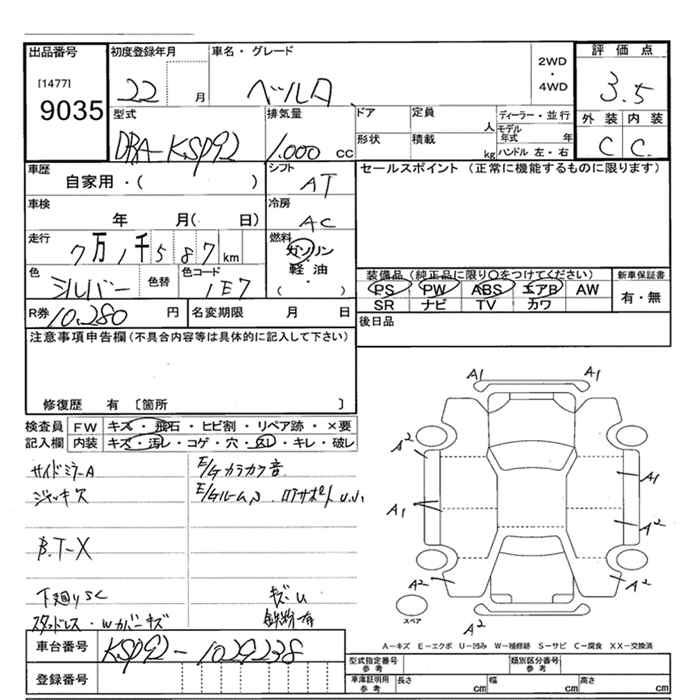 出品番号 初度登録年月 車名・グレード 2WD・4WD 評価点
[1477]
9035 22 月 ベルタ 3.5
型式 排気量 ドア 定員 人 ディーラー・並行 外装 内装
DBA-KSP92 1.000 cc 形状 積載 kg モデル年式 年 C C
ハンドル 左・右
車歴 シフト セールスポイント (正常に機能するものに限ります)
自家用・( ) AT
車検 冷房
年 月( 日) AC
走行 燃料
7万1千587km ガソリン
軽油
・( )
色 色替 色コード 装備品(純正品に限り○をつけてください) 新車保証書
シルバー 1E7 PS PW ABS エアB AW 有・無
SR ナビ TV カワ
R券 10,280 円 名変期限 月 日 後日品
注意事項申告欄(不具合内容等は具体的に記入して下さい)
修復歴 有 [箇所 ]
検査員 FW キズ・飛石・ヒビ割・リペア跡・×要
記入欄 内装 キズ・汚レ・コゲ・穴・スレ・キレ・破レ
サイドミラーA E/Gカラカラ音
ジャッキ欠 E/Gルーム
B.T-X
下廻りSC キズ・U
スタッドレス・Wカバーキズ 鉄粉有
A1 A1
A2
A1
A1
A2
A2 A2
A2
スペア
A-キズ E-エクボ U-凹み W-補修跡 S-サビ C-腐食 XX-交換済
車台番号 KSP92-1029238
登録番号
型式指定番号 参考 類別区分番号 参考
車庫証明用 参考 長さ cm 幅 cm 高さ cm